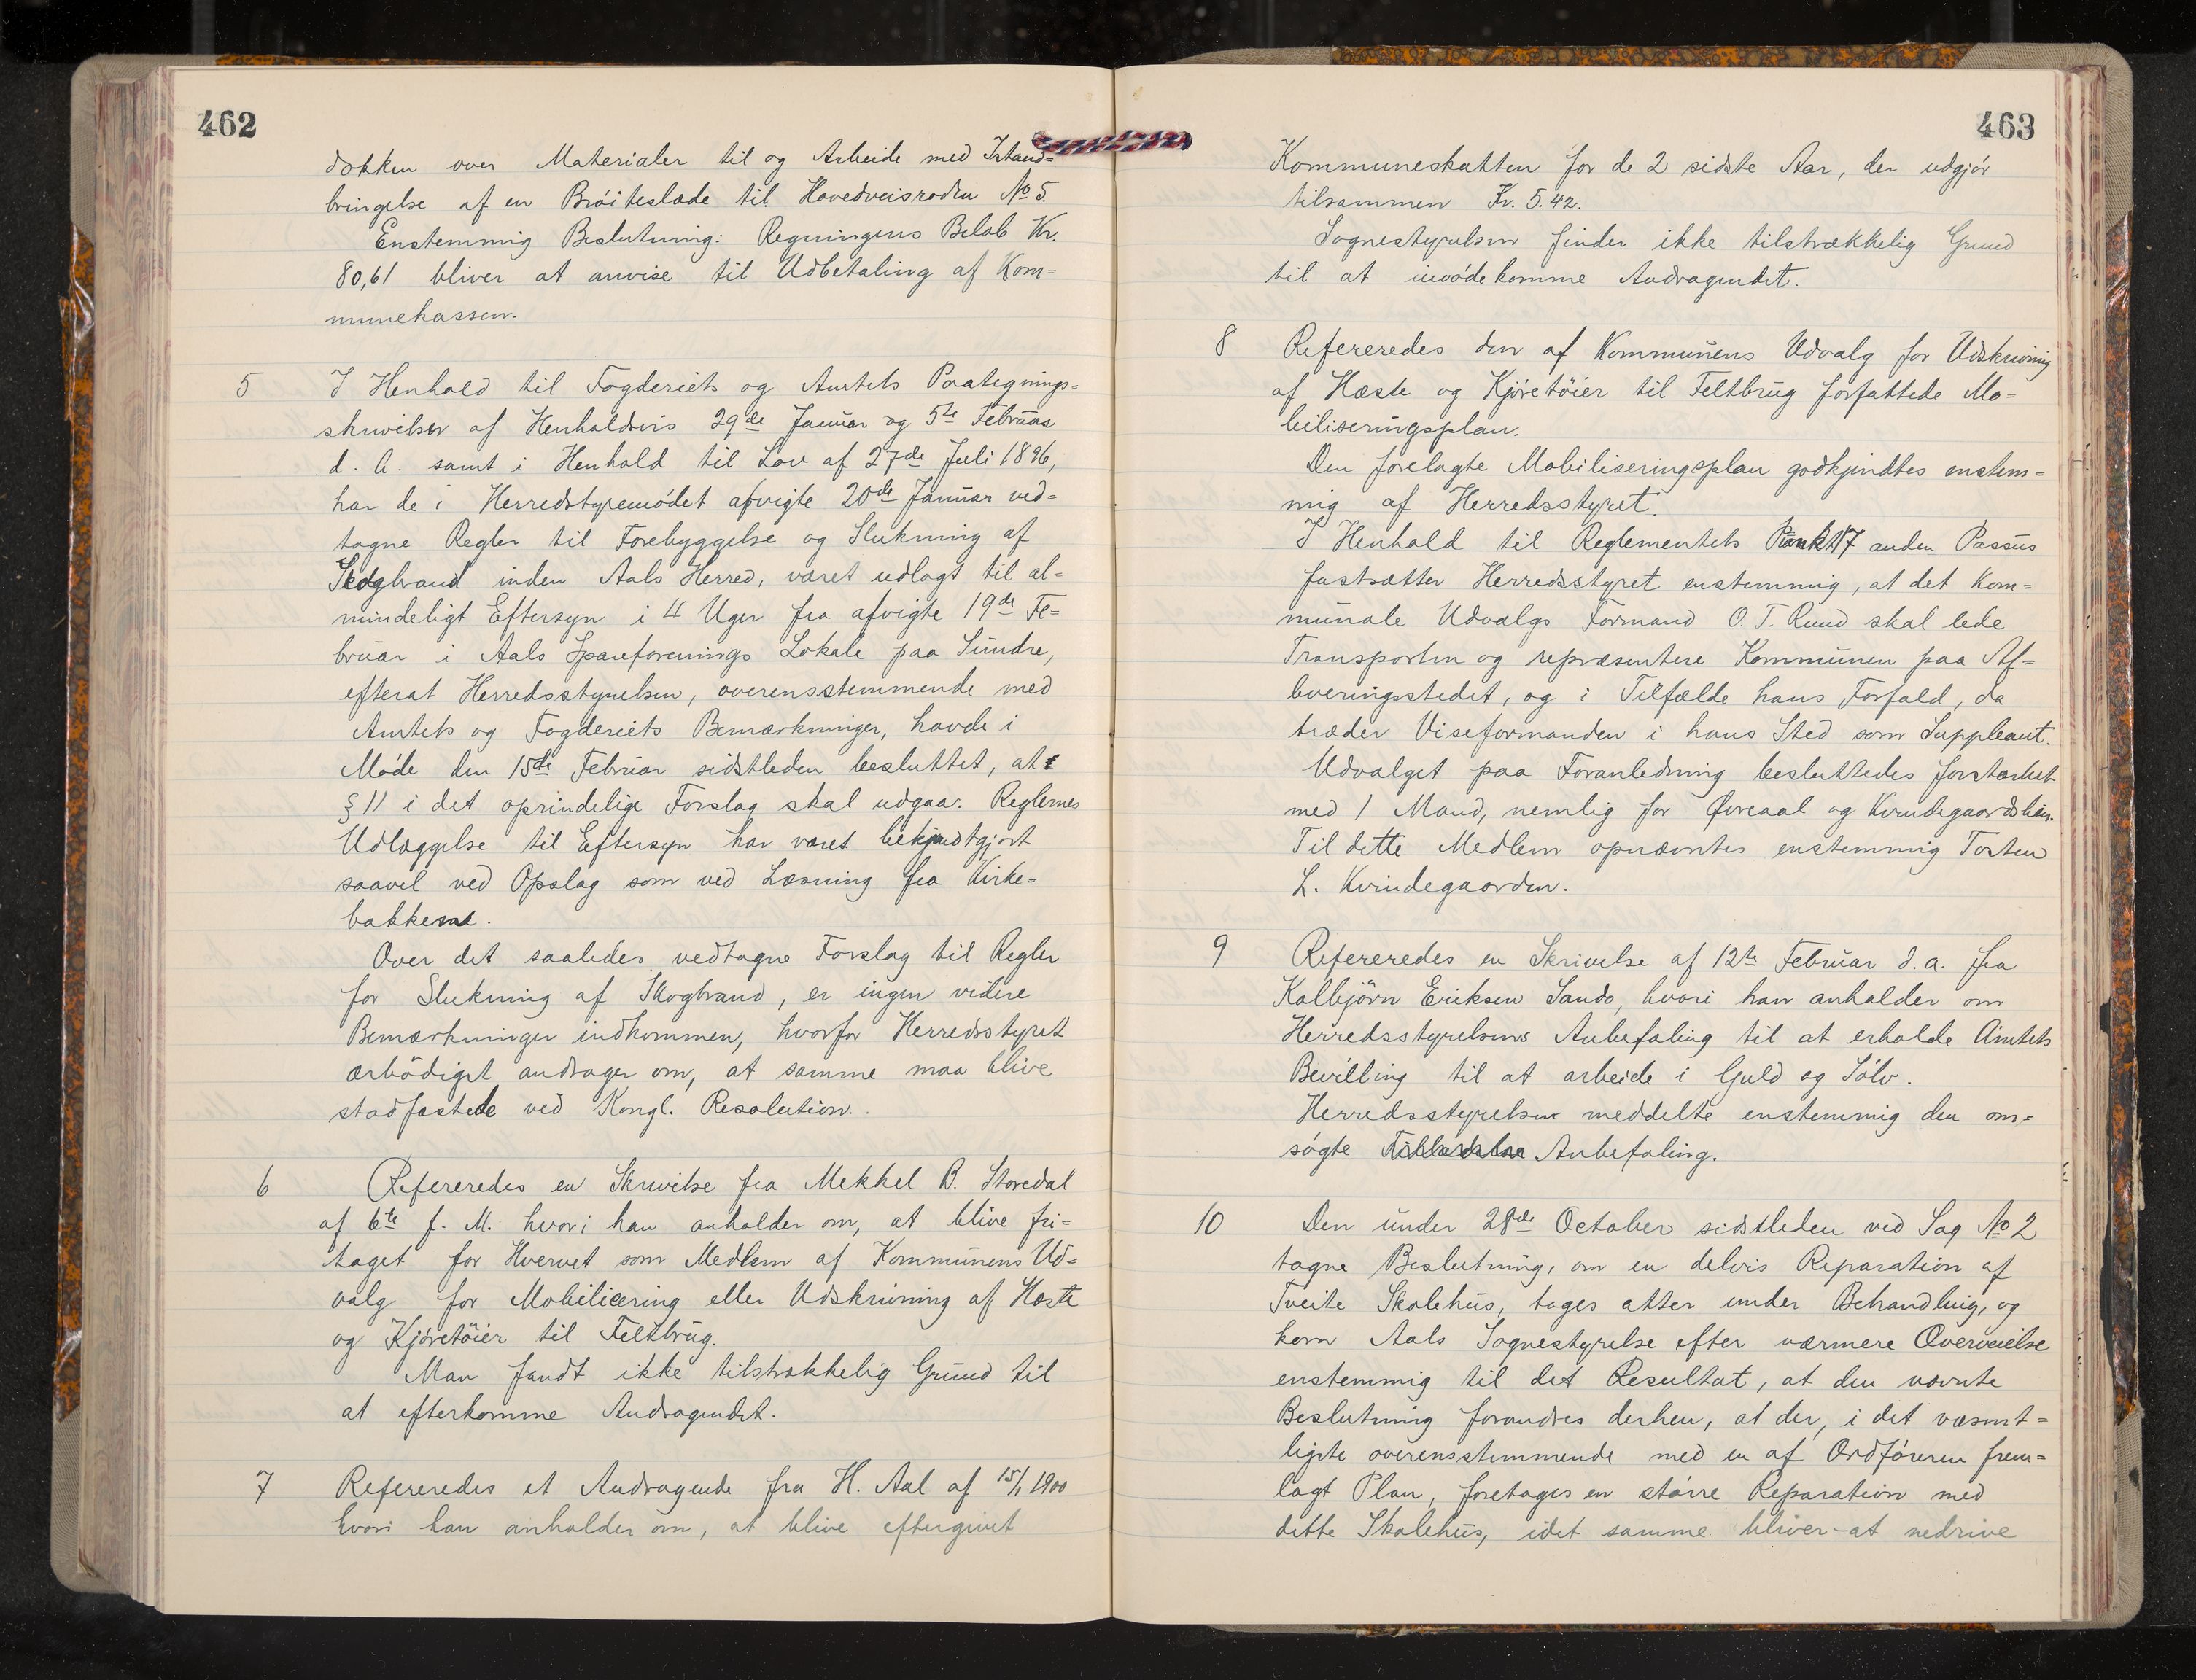 462
dokken over Materialer til og Arbeide med Istand=
bringelse af en Brøiteslæde til Hovedveisroden No 5.
Enstemmig Beslutning: Regningens Beløb Kr.
80,61 bliver at anvise til Udbetaling af Kom=
munekassen.
5 I Henhold til Fogderiets og Amtets Paategnings=
skrivelser af Henholdsvis 29de Januar og 5te Februar
d. A. samt i Henhold til Lov af 27de Juli 1896,
har de i Herredstyremødet afvigte 20de Januar ved=
tagne Regler til Forebyggelse og Slukning af
Skogbrand inden Aals Herred, været udlagt til al=
mindeligt Eftersyn i 4 Uger fra afvigte 19de Fe=
bruar i Aals Spareforenings Lokale paa Sundre,
efterat Herredsstyrelsen, overensstemmende med
Amtets og Fogderiets Bemærkninger, havde i
Møde den 15de Februar sidstleden besluttet, at
§ 11 i det oprindelige Forslag skal udgaa. Reglernes
Udlæggelse til Eftersyn har været bekjendtgjort
saavel ved Opslag som ved Læsning fra Kirke=
bakkerne.
Over det saaledes vedtagne Forslag til Regler
for Slukning af Skogbrand, er ingen videre
Bemærkninger indkommen, hvorfor Herredsstyret
ærbödigst andrager om, at samme maa blive
stadfæstede ved Kongl. Resolution.
6 Refereredes en Skrivelse fra Mekkel B. Storedal
af 6te f. M. hvori han anholder om, at blive fri=
taget for Hvervet som Medlem af Kommunens Ud=
valg for Mobilicering eller Udskrivning af Heste
og Kjøretöier til Feltbrug.
Man fandt ikke tilstrækkelig Grund til
at efterkomme Andragendet.
7 Refereredes et Andragende fra H. Aal af 15/1 1900
hvori han anholder om, at blive eftergivet
463
Kommuneskatten for de 2 sidste Aar, der udgjør
tilsammen Kr. 5.42.
Sognestyrelsen finder ikke tilstrækkelig Grund
til at imødekomme Andragendet.
8 Refereredes den af Kommunens Udvalg for Udskrivning
af Hæste og Kjøretöier til Feltbrug forfattede Mo=
biliseringsplan.
Den forelagte Mobiliseringsplan godkjendtes enstem=
mig af Herredsstyret.
I Henhold til Reglementets Punkt 17 anden Passus
fastsætter Herredsstyret enstemmig, at det Kom=
munale Udvalgs Formand O. T. Ruud skal lede
Transporten og repræsentere Kommunen paa Af=
leveringsstedet, og i Tilfælde hans Forfald, da
træder Viseformanden i hans Sted som Suppleant.
Udvalget paa Foranledning besluttedes forstærket
med 1 Mand, nemlig for Øvreaal og Kvindegaardslien.
Til dette Medlem opnævntes enstemmig Torsten
L. Kvindegaarden.
9 Refereredes en Skrivelse af 12te Februar d.a. fra
Kolbjörn Eriksen Sando, hvori han anholder om
Herredsstyrelsens Anbefaling til at erholde Amtets
Bevilling til at arbeide i Guld og Sölv.
Herredsstyrelsen meddelte enstemmig den om=
søgte Anbefaling.
10 Den under 28de October sidstleden ved Sag No 2
tagne Beslutning, om en delvis Reparation af
Tveite Skolehus, tages atter under Behandling, og
kom Aals Sognestyrelse efter nærmere Overveielse
enstemmig til det Resultat, at den nævnte
Beslutning forandres derhen, at der, i det væsent=
ligste overensstemmende med en af Ordføreren frem=
lagt Plan, foretages en større Reparation med
dette Skolehus, idet samme bliver at nedrive